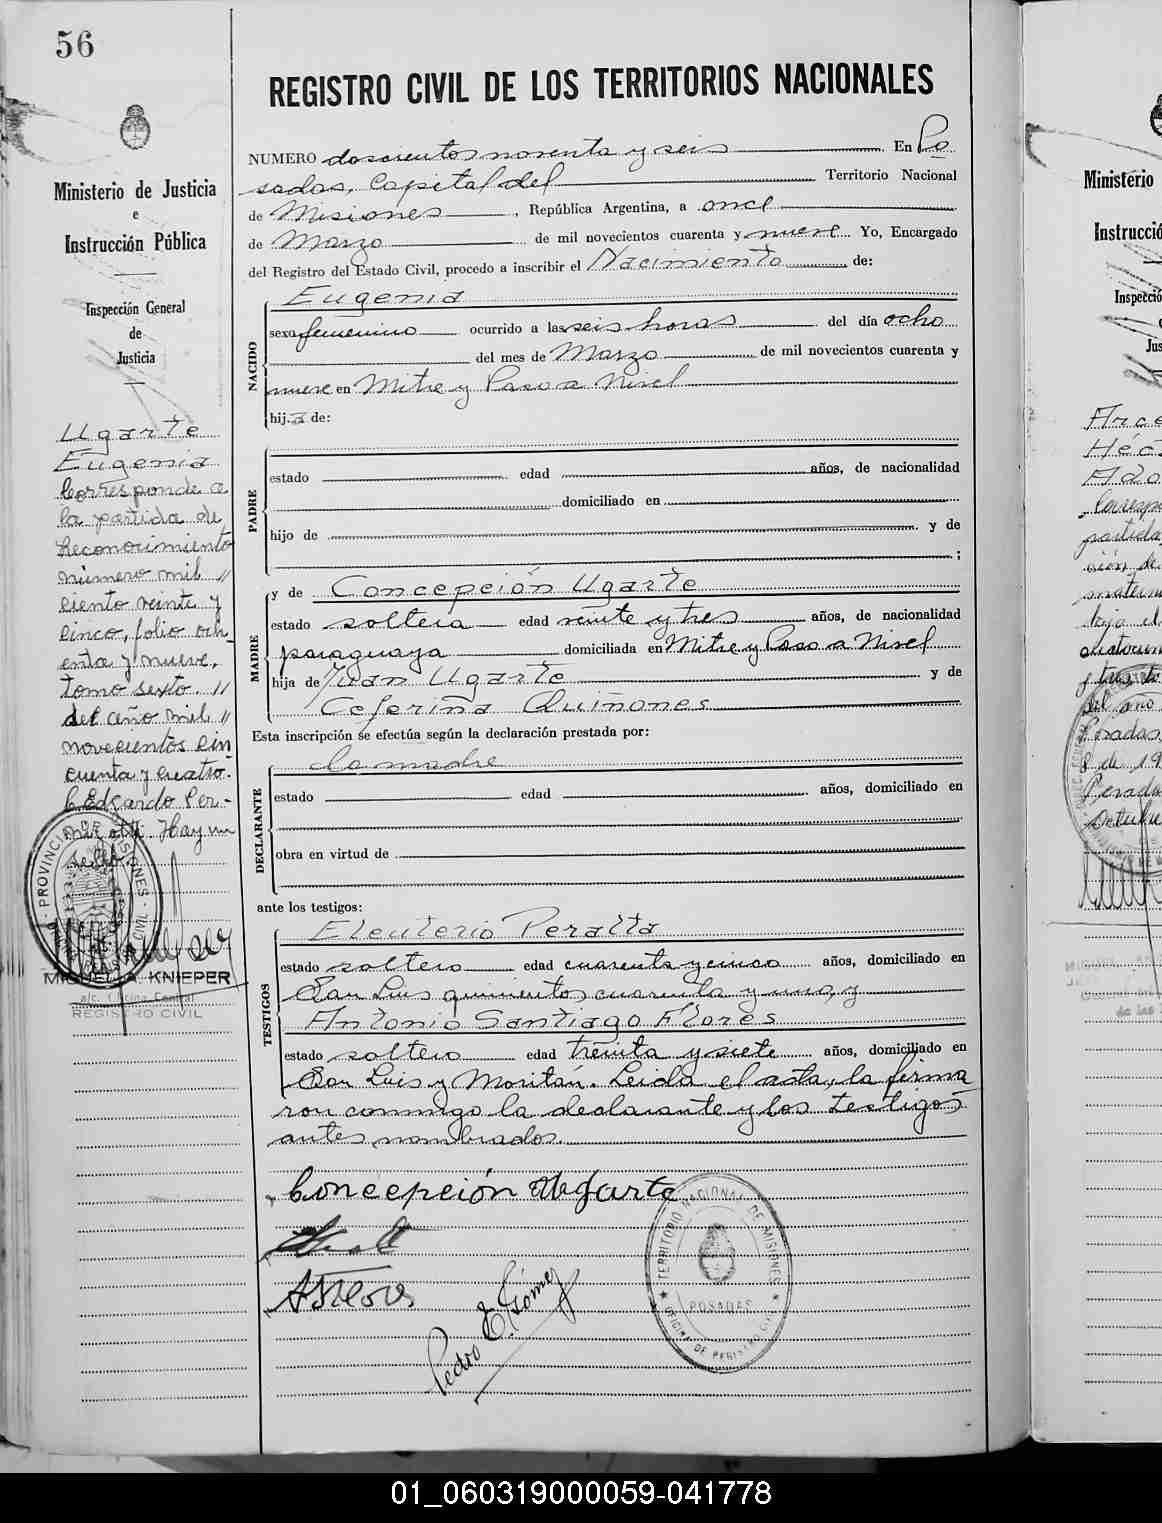 56
REGISTRO CIVIL DE LOS TERRITORIOS NACIONALES
Ministerio de Justicia
e
Instrucción Pública
Inspección General
de
Justicia
NUMERO doscientos noventa y seis En Po
sadas, Capital del Territorio Nacional
de Misiones, República Argentina, a once
de Marzo de mil novecientos cuarenta y nueve. Yo, Encargado
del Registro del Estado Civil, procedo a inscribir el Nacimiento de:
NACIDO
Eugenia
sexo femenino ocurrido a las seis horas del día ocho
del mes de Marzo de mil novecientos cuarenta y
nueve en Mitre y Paso a Nivel
hija de:
PADRE
estado edad años, de nacionalidad
domiciliado en
hijo de y de
;
MADRE
y de Concepción Ugarte
estado soltera edad veinte y tres años, de nacionalidad
paraguaya domiciliada en Mitre y Paso a Nivel
hija de Juan Ugarte y de
Ceferina Quiñones
Esta inscripción se efectúa según la declaración prestada por:
DECLARANTE
la madre
estado edad años, domiciliado en
obra en virtud de
ante los testigos:
TESTIGOS
Eleuterio Peralta
estado soltero edad cuarenta y cinco años, domiciliado en
San Luis quinientos cuarenta y uno, y
Antonio Santiago Flores
estado soltero edad treinta y siete años, domiciliado en
San Luis y Moritán. Leida el acta, la firma
ron conmigo la declarante y los testigos
antes nombrados.
Concepción Ugarte
Pedro E. Gómez
TERRITORIO NACIONAL DE MISIONES
POSADAS
OFICINA DE REGISTRO CIVIL
Ugarte
Eugenia
Corresponde a
la partida de
Reconocimiento
número mil //
ciento veinte y
cinco, folio och
enta y nueve,
tomo sexto. //
del año mil //
novecientos cin
cuenta y cuatro.
Edgardo Per-
Hay un
sello
PROVINCIA DE MISIONES
MIGUEL A. KNIEPER
a/c. Oficina Central
REGISTRO CIVIL
Ministerio
Instrucció
Inspecció
Jus
Arce
Héc
Ado
partida
Posadas
8 de 19
Posada
Octubre
01_060319000059-041778